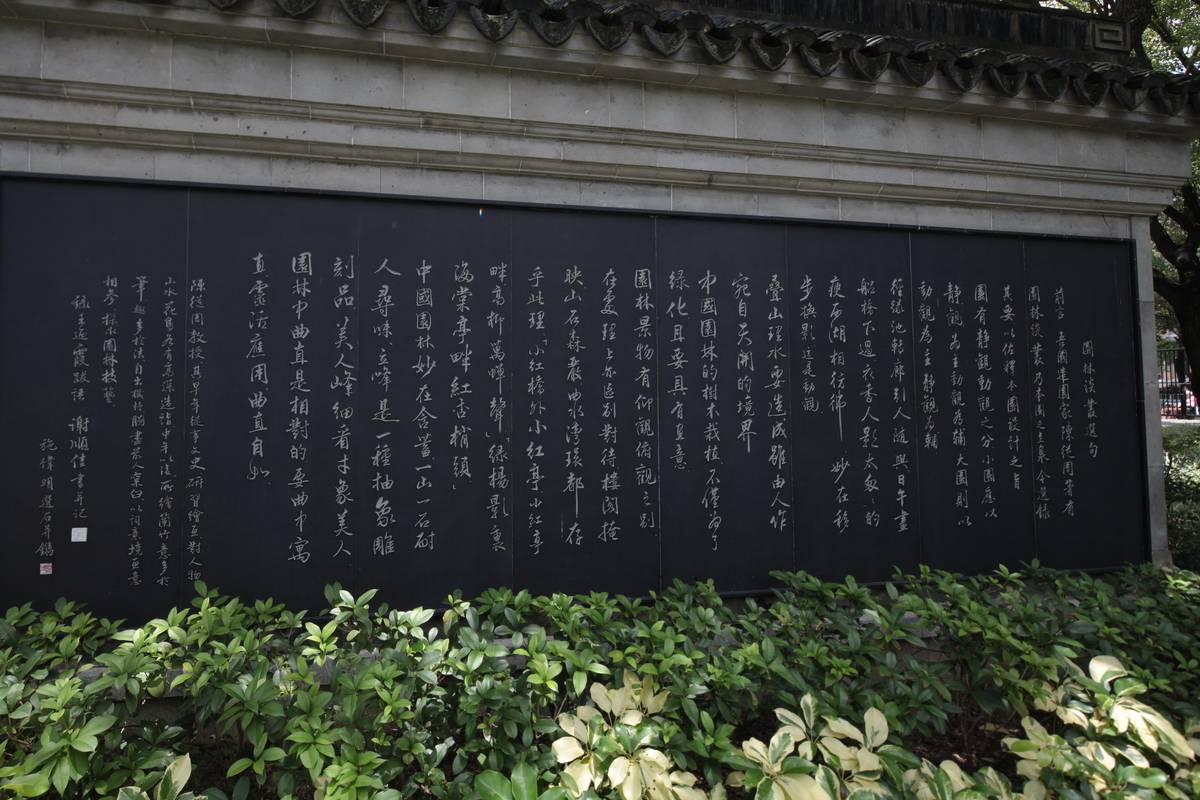 園林談叢選句
前言 吾國園林專家陳從周著有
園林談叢乃本園之真髓今選錄
其要以佐釋本園設計之旨
園有靜觀動觀之分小園應以
靜觀為主動觀為輔大園則以
動觀為主靜觀為輔
徑緣池轉廊引人隨與日午畫
船橋下過衣香人影太匆匆的
瘦西湖相彷彿 妙在移
步換影這是動觀
疊山理水要造成雖由人作
宛自天開的境界
中國園林的樹木栽植不僅為了
綠化且要具有畫意
園林景物有仰觀俯觀之別
在處理上亦區別對待樓閣掩
映山石森嚴曲水灣環都存
乎此理「小紅橋外小紅亭小紅亭
畔高柳萬蟬聲」「綠楊影裏
海棠亭畔紅杏梢頭」
中國園林妙在含蓄一山一石耐
人尋味立峰是一種抽象雕
刻品美人峰細看才象美人
園林中曲直是相對的要曲中寓
直靈活應用曲直自如
陳從周教授其早年從事文史研習繪畫對人物
山水花鳥各有高深造詣中年以後所繪蘭竹意多於
筆趣多於法自出機杼胸書案人窠臼以詞意境畫意
相參探求園林技藝
謝順佳書并記
施偉明選石并鐫